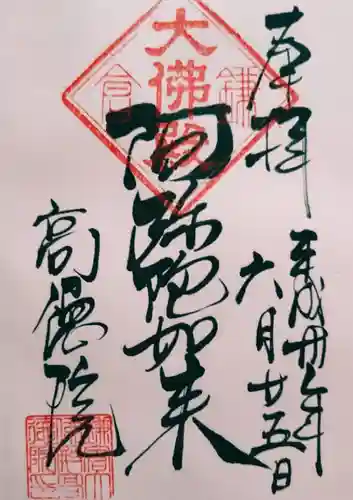 奉拝
平成卅年
六月廿五日
大佛殿
鎌倉
阿弥陀如来
高徳院